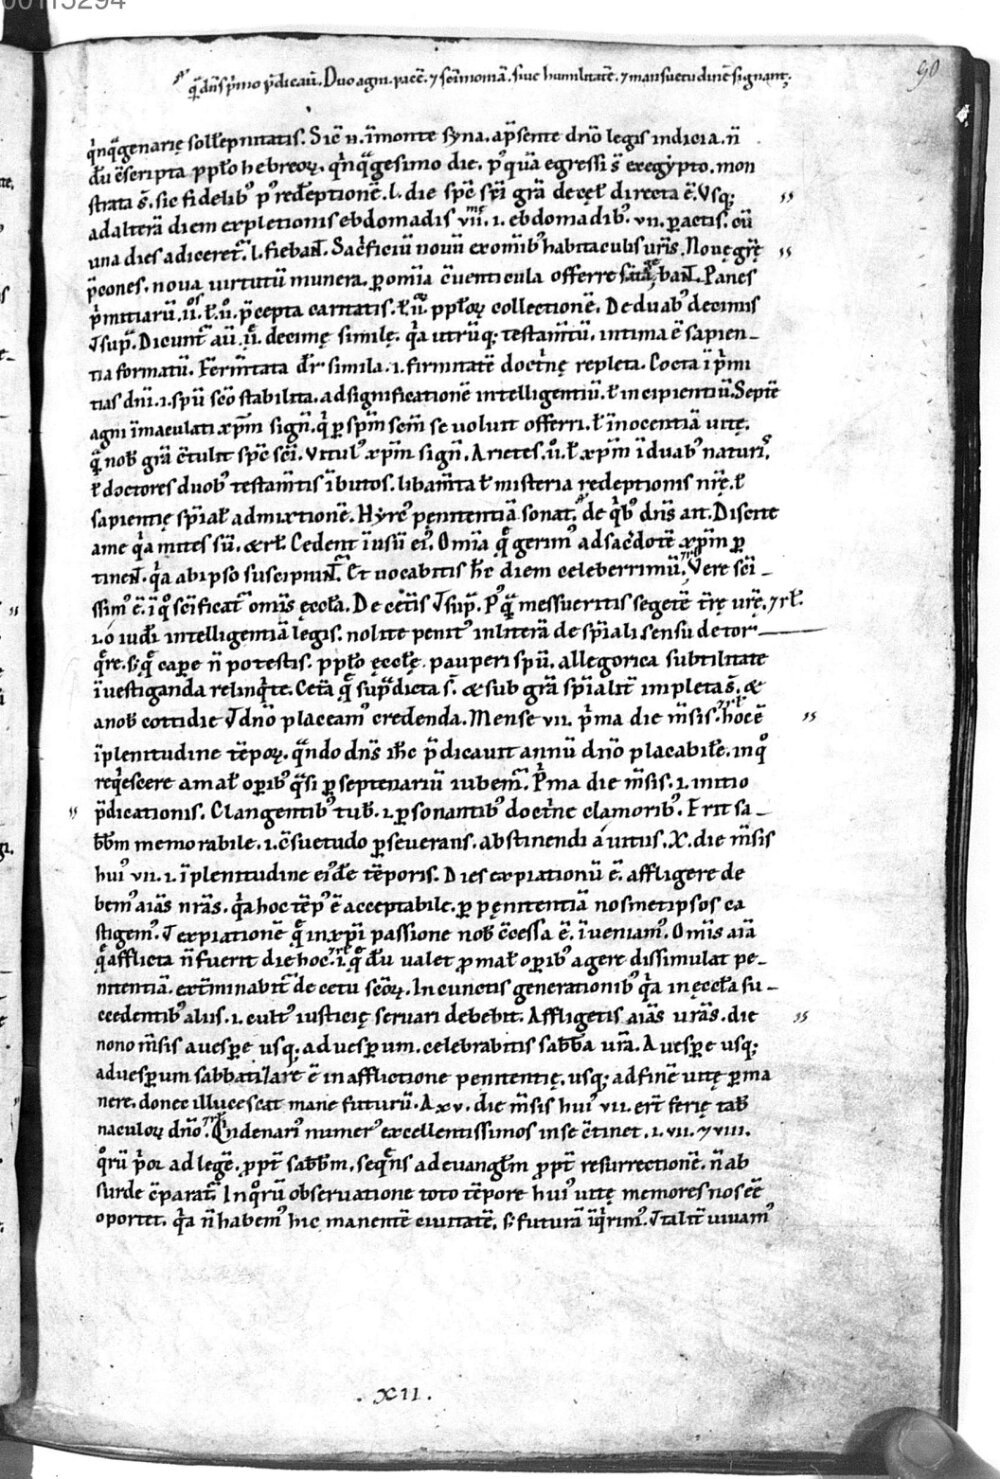 00115294
90
q̄ dn̄s p̄mo p̄dicaū. Duo agni pacē. ⁊ sc̄imoniā. siue humilitatē. ⁊ mansuetudinē signant;
q̇nq̄genarię sollēpnitatis. Sic̄ n. īmonte syna. ap̄sente dn̄o legis indicia. n̄
dū ēscripta ppl̄o hebreoꝝ. q̇nq̄gesimo die. pꝰquā egressi s̄ exegẏpto. mon
strata s̄. sic fidelibꝰ pꝰ redēptionē. l. die sp̄c sc̄i grā decęl̄ directa ē. Vsq;
adalterā diem expletionis ebdomadis vii. .i. ebdomadibꝰ. vii. ꝑactis. cū
una dies adiceret̄. l. fiebaɴ̄. Sacficiū nouū exomībꝰ habitaculis ur̄is. Nouę gr̄ę
p̄cones. noua uirtutū munera. ꝑ omīa c̄uenticula offerre baɴ̄. Panes
p̄mitiarū. ii. ł. ii. p̄cepta caritatis. ł. ii. ppl̄oꝝ collectionē. De duabꝰ decimis
⁊ sup̄. Dicunt̄ aū. ii. decimę similę. q̇a utrūq; testam̄tū. intima ē sapien-
tia formatū. Ferm̄tata dr̄ simila .i. firmitatē doct̄nę repleta. Cocta ī p̄mi
tias dn̄i .i. spū sc̄o stabilita. adsignificationē intelligentiū. ł incipientiū. Septē
agni īmaculati xp̄m sign̄. q̇ ꝑ sp̄m sc̄m se uoluit offerri. ł īnocentiā uitę.
q̄ nob̄ grā c̄tulit sp̄c sc̄i. Vitulꝰ xp̄m sign̄. Arietes. ū. ł xp̄m īduabꝰ naturis.
ł doctores duobꝰ testam̄tis ībutos. libam̄ta ł misteria redeptionis nr̄ę. ł
sapientię sp̄ial̄ admixtionē. Hyrcꝰ pęnitentiā sonat. de q̇bꝰ dn̄s ait. Discite
ame q̇a mitis sū. &rł. Cedent īusū eiꝰ. Omīa q̄ gerimꝰ adsac̄dotē xp̄m ꝑ
tineɴ̄. q̇a abipso suscipiuɴ̄. Et uocabitis h̄c diem celeberrimū. Vere sc̄i-
ssimꝰ ē. ī q̇ sc̄ificat̄ omīs ęccl̄a. De cet̄is ⁊ sup̄. Pꝰq̄ messueritis segetē tr̄ę ur̄ę. ⁊rł.
.i. o iudi intelligentiā legis. nolite penitꝰ inliterā de sp̄iali sensu detor
q̄re. s; q̄ capere n̄ potestis. ppl̄o ęccl̄ę. pauperi spū. allegorica subtilitate
īuestiganda relinq̇te. Cet̄a q̄ sup̄dicta s̄. & sub grā sp̄ialit̄ impleta s̄. &
anob̄ cottidie ⁊ dn̄o placeamꝰ credenda. Mense vii. p̄ma die m̄sis. hoc ē
īplenitudine tēpoꝝ. q̄ndo dn̄s ih̄c p̄dicauit annū dn̄o placabilē. inq̇
req̇escere amal̄ op̄ibꝰ q̄si ꝑ septenariū iubem̄. P̄ma die m̄sis .i. initio
p̄dicationis. Clangentibꝰ tub̄ .i. ꝑsonantibꝰ doct̄nę clamoribꝰ. Erit sa-
bb̄m memorabile .i. c̄suetudo ꝑseuerans. abstinendi auitiis. X. die m̄sis
huiꝰ vii .i. īplenitudine eiꝰdē tēporis. Dies expiationū ē. affligere de
bemꝰ aīas nrās. q̇a hoc tēpꝰ ē acceptabile. ꝑ pęnitentiā nosmetipsos ca
stigemꝰ. ⁊ expiationē q̄ inxp̄i passione nob̄ c̄cessa ē. īueniamꝰ. Omīs aīa
q̄ afflicta n̄ fuerit die hoc. .i. q̄ dū ualet pro mal̄ op̄ibꝰ agere dissimulat pe-
nitentiā. ext̄minabit̄ de cetu sc̄oꝝ. In cunctis generationibꝰ q̇a inęccl̄a su-
ccedentibꝰ aliis .i. cultꝰ iusticię seruari debebit. Affligetis aīas urās. die
nono m̄sis auesꝑe usq; aduesꝑum. celebrabitis sabb̄a urā. A uesꝑe usq;
aduesꝑum sabbatizare ē inafflictione penitentię. usq; adfinē uitę ꝑma
nere. donec illucescat mane futurū. A xv. die m̄sis huiꝰ vii. ert̄ ferię tab̄
naculoꝝ dn̄o. Qndenariꝰ numerꝰ excellentissimos inse c̄tinet .i. vii. ⁊ viii.
q̇rū p̄or adlegē. p̄pt̄ sabb̄m. seq̄ns adeuangl̄m p̄pt̄ resurrectionē. n̄ ab
surde c̄parat̄. Inq̇rū obseruatione toto tēpore huiꝰ uitę memores nos ēē
oportet. q̇a n̄ habemꝰ hic manentē ciuitatē. s; futurā īq̇rimꝰ. ⁊ talit̄ uiuamꝰ
. XII .